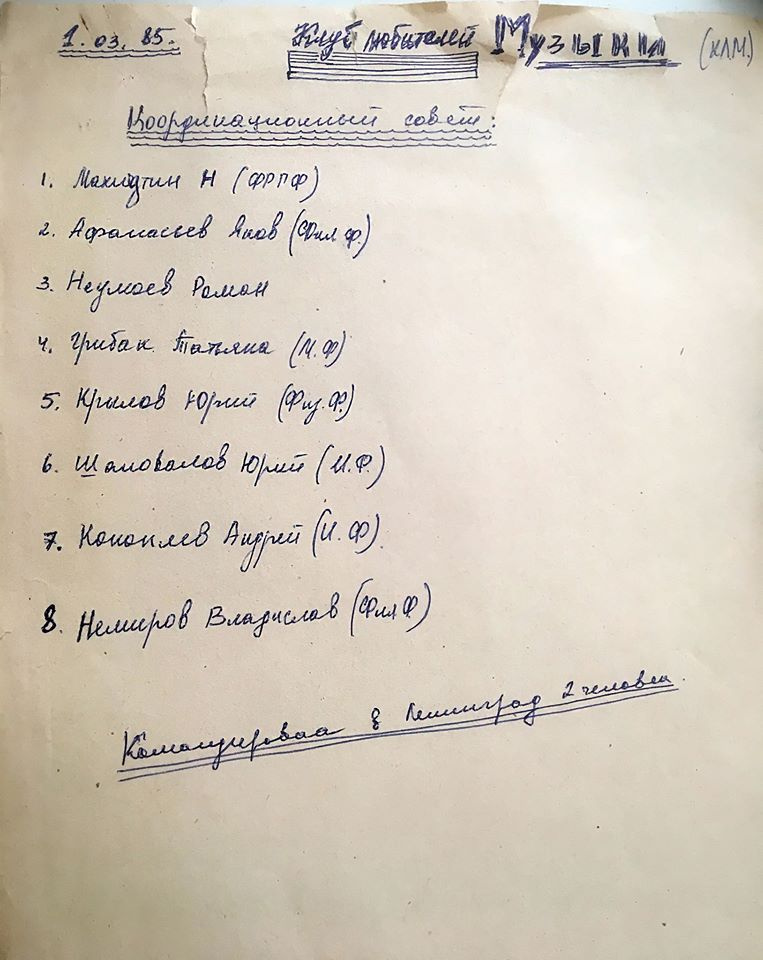 1. 03. 85. Клуб любителей Музыки (КЛМ.)
Координационный совет:
1. Н (ФРГФ)
2. Афанасьев Яков (Фил Ф.)
3. Неумоев Роман
4. Грибак Татьяна (М.Ф)
5. Крылов Юрий (Физ.Ф.)
6. Шаповалов Юрий (И.Ф.)
7. Коноплев Андрей (И.Ф)
8. Немиров Владислав (Фил Ф.)
в Ленинград 2 человека.